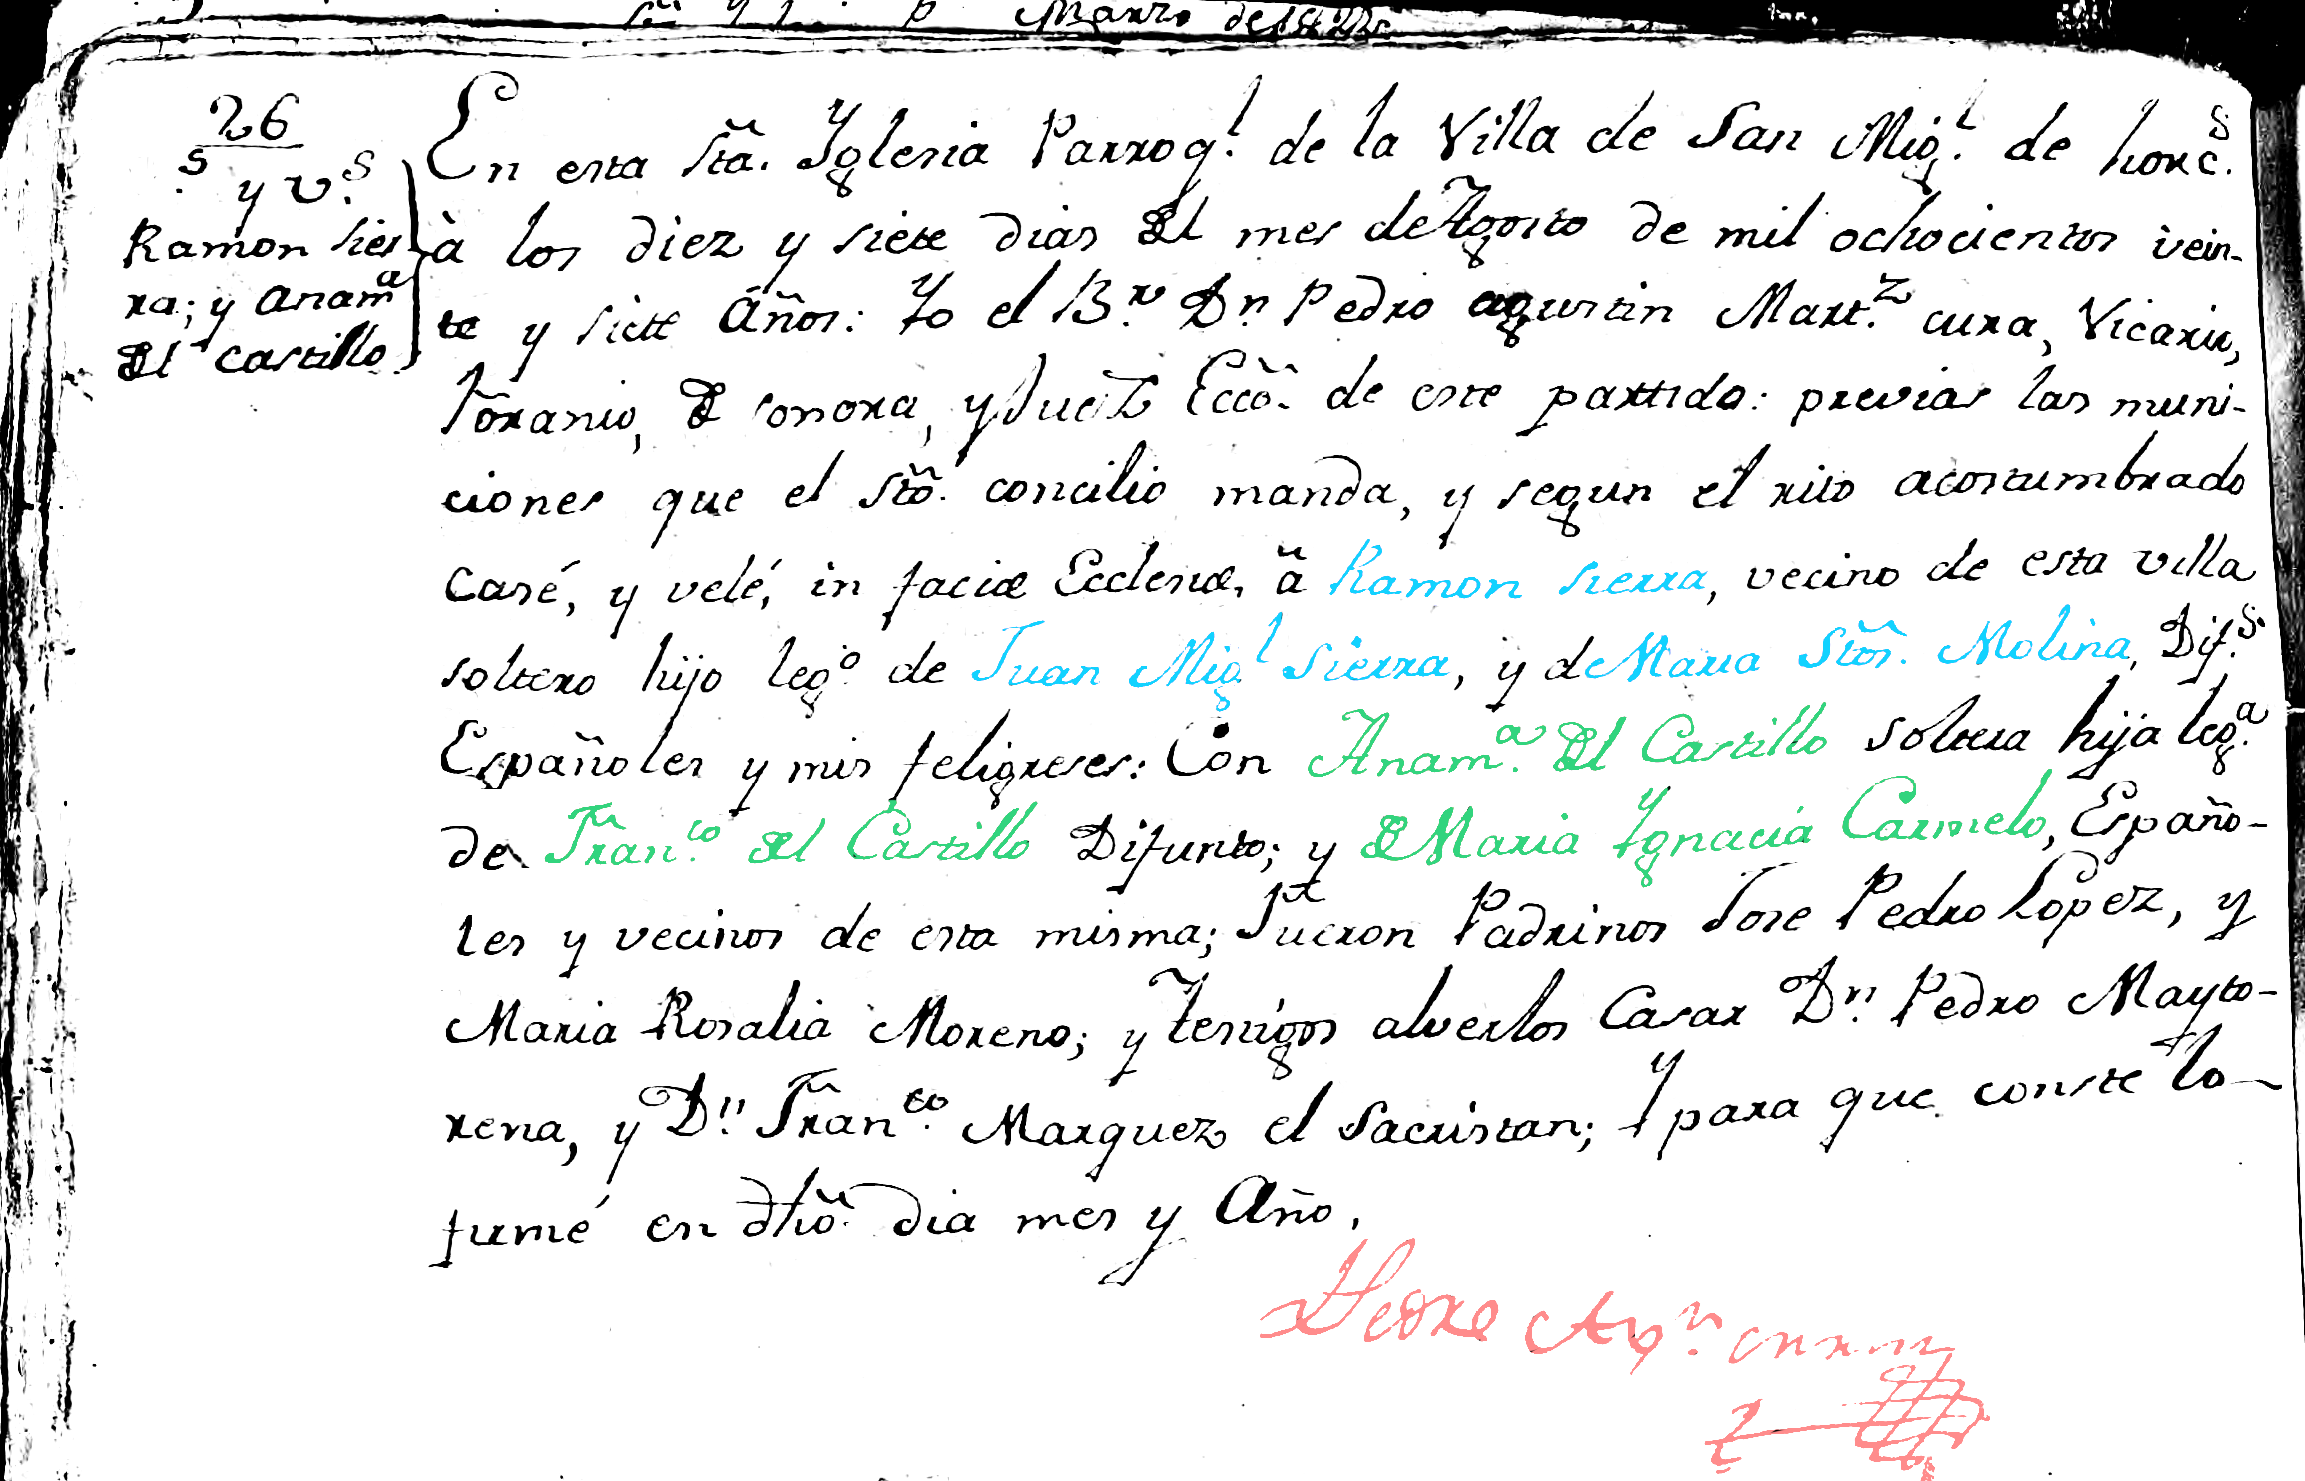 Marzo de 1827.
26
s y v.s
Ramon Sier-
ra; y Anam.a
Del Castillo.
En esta Sta. Yglesia Parroq.l de la Villa de San Mig.l de horc.s
à los diez y siete dias Del mes de Agosto de mil ochocientos vein-
te y siete Años: Yo el B.r Dn. Pedro agustin Mart.z cura, Vicario,
Foranio, De sonora, y Juez Ecco. de este partido: previas las muni-
ciones que el Sto. concilio manda, y segun el rito acostumbrado
Casé, y velé, in faciæ Eclesiæ, ã Ramon Sierra, vecino de esta villa
soltero hijo leg.o de Juan Mig.l Sierra, y de Maria Stos. Molina, Dif.s
Españoles y mis feligreses: Con Anam.a Del Castillo soltera hija leg.a
de Fran.co Del Castillo Difunto; y De Maria Ygnacia Carmelo, Españo-
les y vecinos de esta misma; Fueron Padrinos Jose Pedro Lopez, y
Maria Rosalia Moreno; y Testigos alverlos Casar Dn. Pedro Mayto-
rena, y Dn. Fran.co Marquez el Sacristan; Y para que conste lo
firmé en dho. dia mes y Año.
Pedro Ag.n